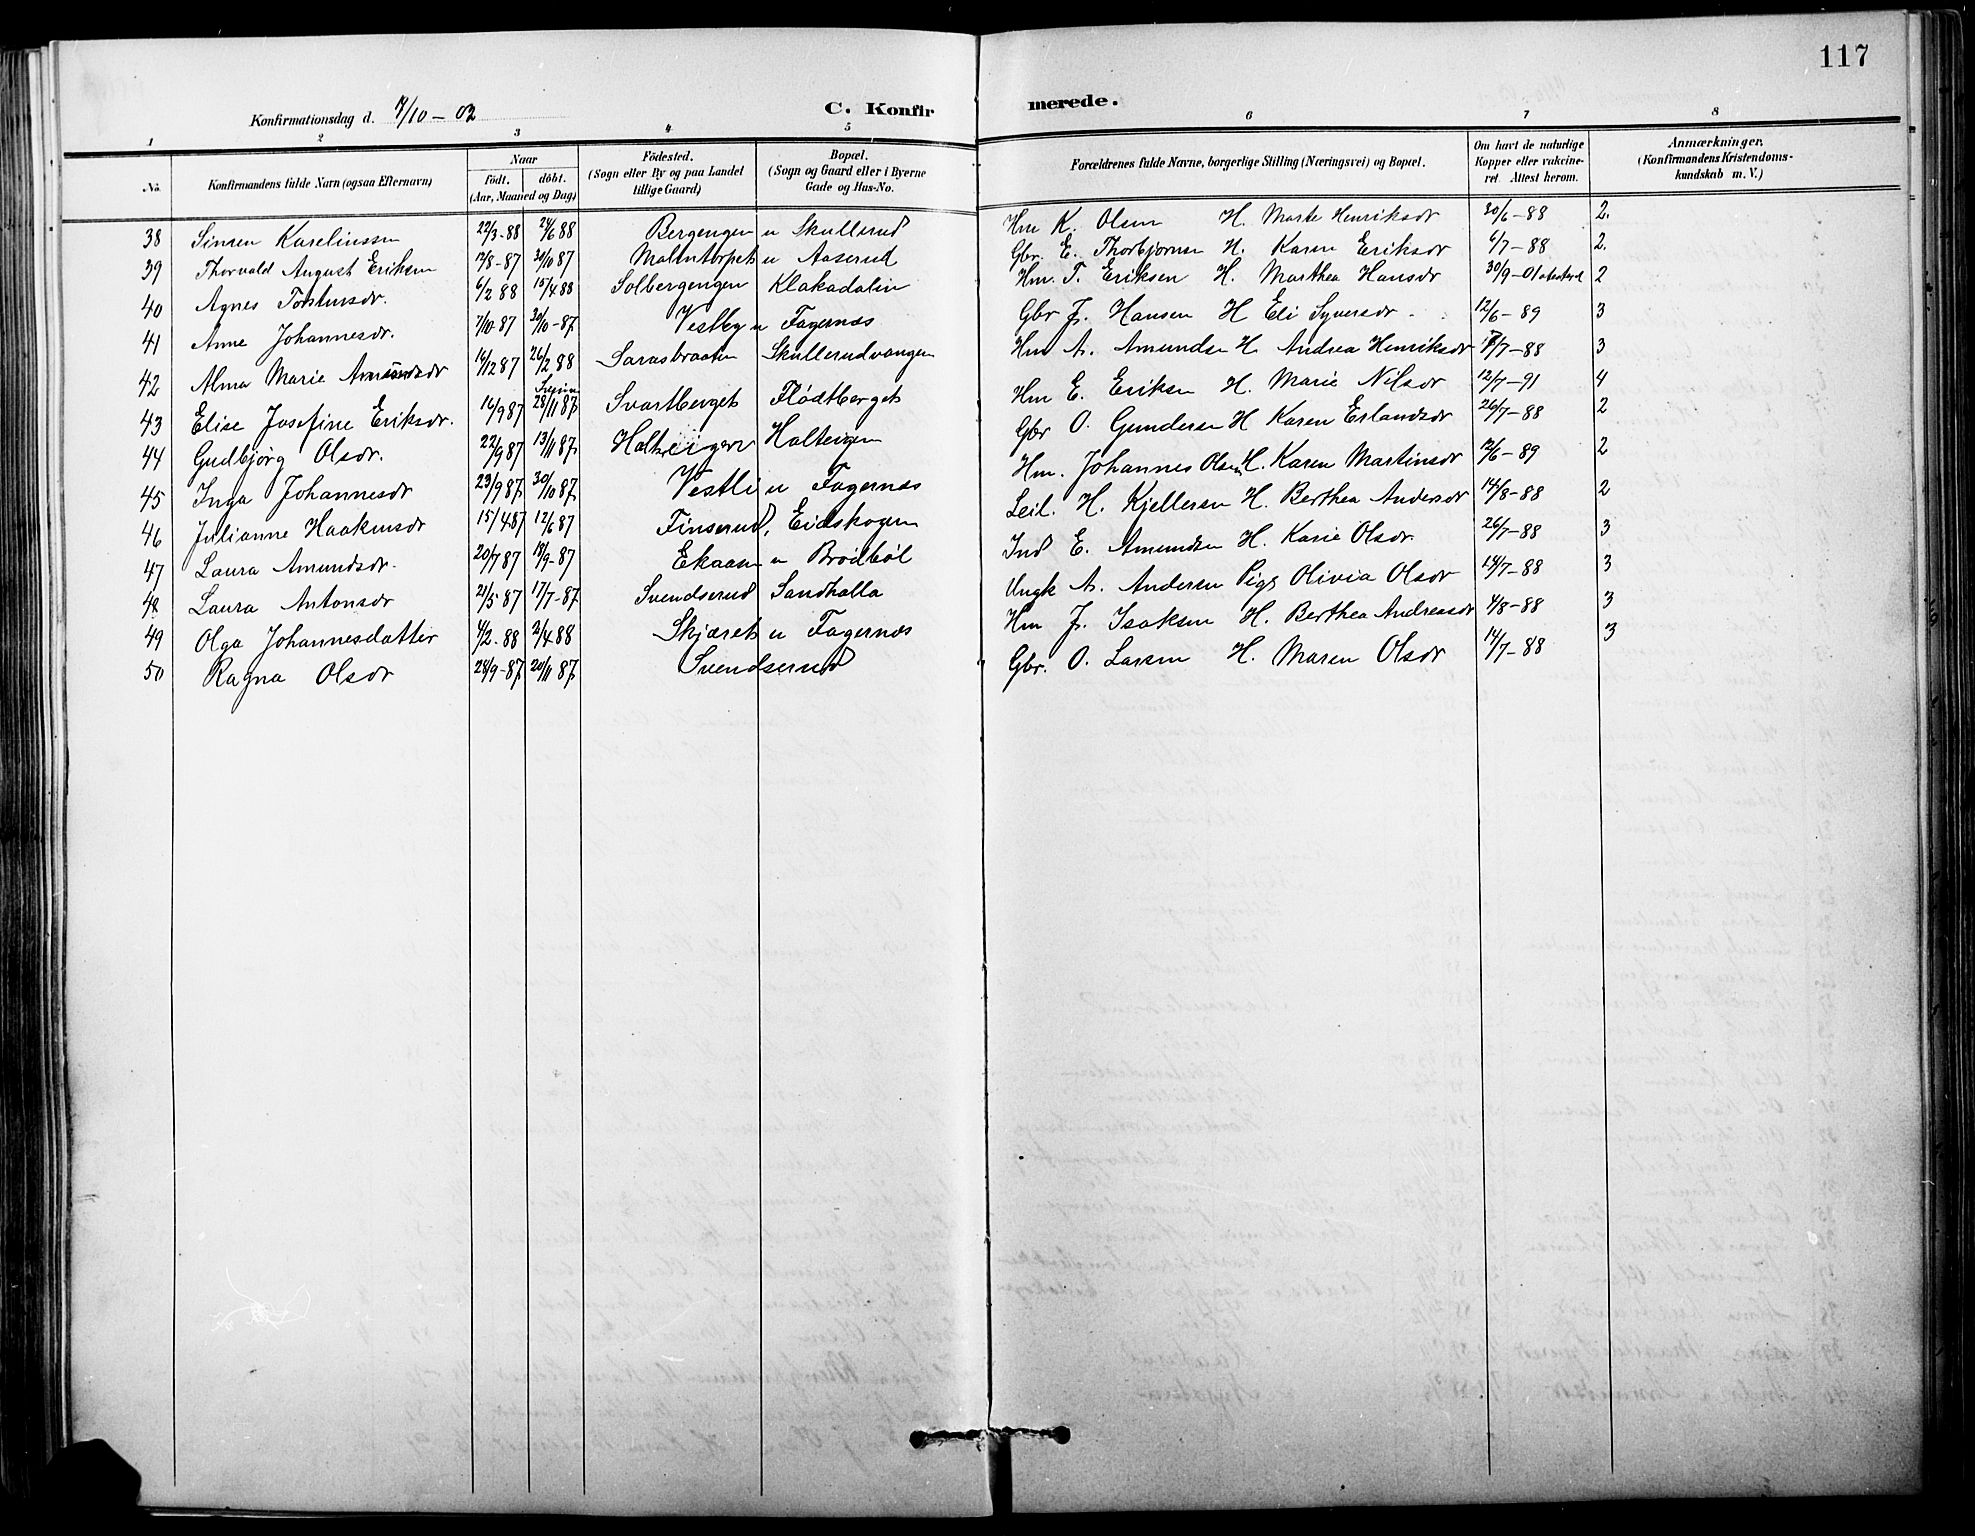 117
Konfirmationsdag d. 7/10 – 02 C. Konfirmerede.
1 2 3 4 5 6 7 8
No. Konfirmandens fulde Navn (ogsaa Efternavn) Naar födt. döbt. (Aar, Maaned og Dag) Födested. (Sogn eller By og paa Landet tillige Gaard) Bopæl. (Sogn og Gaard eller i Byerne Gade og Hus-No. Forældrenes fulde Navne, borgerlige Stilling (Næringsvei) og Bopæl. Om havt de naturlige Kopper eller vakcineret. Attest herom. Anmærkninger. (Konfirmandens Kristendomskundskab m. V.)
38 Simen Karelinssen 22/3-88 24/6 88 Bergengen u Skullerud Hm K. Olsen H. Marte Henriksdr 30/6-88 2.
39 Thorvald August Eriksen 12/8-87 30/10 87 Malmtorpet u Aaserud Gbr. E. Thorbjørnsen H. Karen Eriksdr 6/7-88 2.
40 Agnes Torstensdr. 6/2 88 15/4 88 Solbergengen Klakadalen Hm. T. Eriksen H. Marthea Hansdr 30/9-01 2
41 Anne Johannesdr. 7/10-87 30/10-87 Vestby u Fagernæs Gbr J. Hansen H Eli Syversdr 12/6-89 3
42 Alma Marie Amundsdr 16/12 87 26/2 88 Sarasbraaten Skullerudvangen Hm A. Amundsen H. Andrea Henriksdr /7-88 3
43 Elise Josefine Eriksdr. 16/9 87 28/11 87 Svartberget Flødtberget Hm E. Eriksen H. Marie Nilsdr 12/7-91 4
44 Gudbjörg Olsdr. 22/9 87 13/11 87 Holteigen Holteigen Gbr O. Gundersen H Karen Erlandsdr 26/7-88 2
45 Inga Johannesdr 23/9 87 30/10 87 Vestli u Fagernæs Hm. Johannes Olsen H. Karen Martinsdr 12/6-89 2
46 Julianne Haakensdr 15/4 87 12/6 87 Finserud, Eidskogen Leil. H. Kjellesen H. Berthea Andersdr 14/8-88 2
47 Laura Amundsdr. 20/7 87 18/9-87 Ekaasen u Brödböl Ind E. Amundsen H. Karie Olsdr. 26/7-88 3
48 Laura Antonsdr 21/5 87 17/7-87 Svendserud Sandholla Ungk A. Andersen Pige Olivia Olsdr 14/7-88 3
49 Olga Johannesdatter 4/2-88 2/4 88 Skjæret u Fagernæs Hm J. Isaksen H. Berthea Andreasdr 4/8-88 3
50 Ragna Olsdr 24/9-87 20/11 87 Svendserud Gbr. O. Larsen H. Maren Olsdr 14/7-88 3